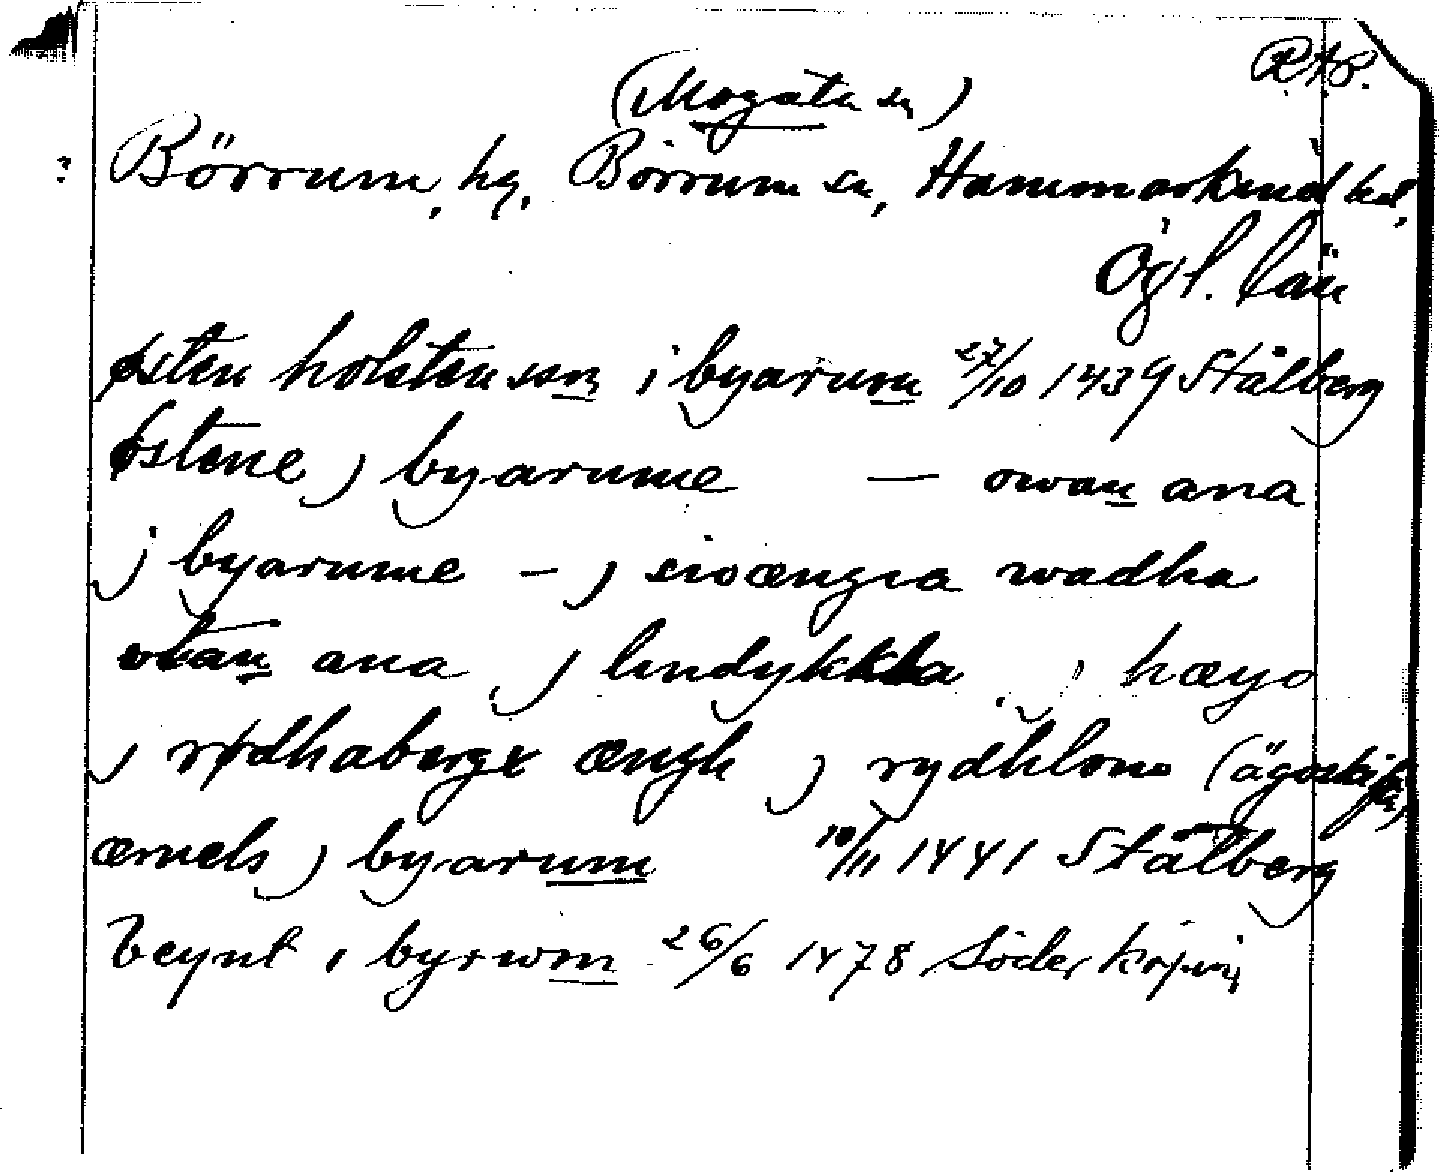 RAP.
(Mogata sn)
? Börrum, hg, Börrum sn, Hammarkind hd,
Ögl. län
østen holstensson i byarum 27/10 1439 Stålberg
østene j byarume — owan ana
j byarume – j sioængia wadha
vtan ana j lindykkla j høyo
j rødhabergx ængh j rydhlone (ägoskifte)
æmels j byarum 10/11 1441 Stålberg
beynt i byrwm 26/6 1478 Söderköping